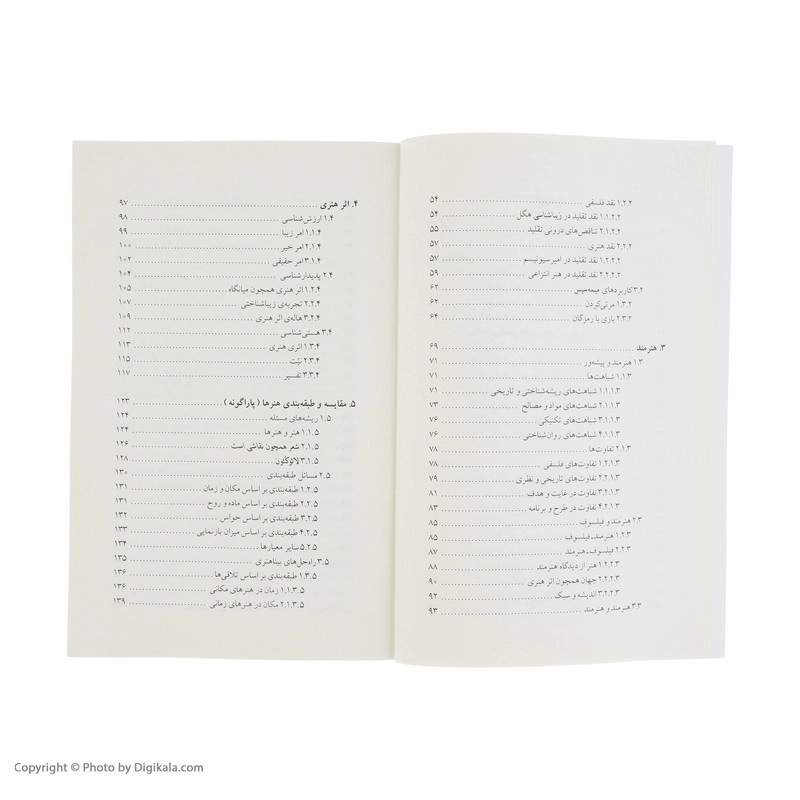 ۱.۲.۲ نقد فلسفی ........ ۵۴
۱.۱.۲.۲ نقد تقلید در زیباشناسی هگل ........ ۵۴
۲.۱.۲.۲ تناقض‌های درونی تقلید ........ ۵۵
۲.۲.۲ نقد هنری ........ ۵۷
۱.۲.۲.۲ نقد تقلید در امپرسیونیسم ........ ۵۷
۲.۲.۲.۲ نقد تقلید در هنر انتزاعی ........ ۵۹
۳.۲ کاربردهای میمه‌سیس ........ ۶۲
۱.۳.۲ مرئی‌کردن ........ ۶۲
۲.۳.۲ بازی با رمزگان ........ ۶۴
۳. هنرمند ........ ۶۹
۱.۳ هنرمند و پیشه‌ور ........ ۷۱
۱.۱.۳ شباهت‌ها ........ ۷۱
۱.۱.۱.۳ شباهت‌های ریشه‌شناختی و تاریخی ........ ۷۱
۲.۱.۱.۳ شباهت‌های مواد و مصالح ........ ۷۳
۳.۱.۱.۳ شباهت‌های تکنیکی ........ ۷۶
۴.۱.۱.۳ شباهت‌های روان‌شناختی ........ ۷۶
۲.۱.۳ تفاوت‌ها ........ ۷۸
۱.۲.۱.۳ تفاوت‌های فلسفی ........ ۷۸
۲.۲.۱.۳ تفاوت‌های تاریخی و نظری ........ ۷۹
۳.۲.۱.۳ تفاوت در غایت و هدف ........ ۸۱
۴.۲.۱.۳ تفاوت در طرح و برنامه ........ ۸۳
۲.۳ هنرمند و فیلسوف ........ ۸۵
۱.۲.۳ هنرمند ـ فیلسوف ........ ۸۵
۲.۲.۳ فیلسوف ـ هنرمند ........ ۸۷
۱.۲.۲.۳ هنر از دیدگاه هنرمند ........ ۸۸
۲.۲.۲.۳ جهان همچون اثر هنری ........ ۹۰
۳.۲.۲.۳ اندیشه و سبک ........ ۹۲
۳.۳ هنرمند و هنرمند ........ ۹۳
۴. اثر هنری ........ ۹۷
۱.۴ ارزش‌شناسی ........ ۹۸
۱.۱.۴ امر زیبا ........ ۹۹
۲.۱.۴ امر خیر ........ ۱۰۰
۳.۱.۴ امر حقیقی ........ ۱۰۲
۲.۴ پدیدارشناسی ........ ۱۰۴
۱.۲.۴ اثر هنری همچون میانگاه ........ ۱۰۵
۲.۲.۴ تجربه‌ی زیباشناختی ........ ۱۰۷
۳.۲.۴ هاله‌ی اثر هنری ........ ۱۰۹
۳.۴ هستی‌شناسی ........ ۱۱۲
۱.۳.۴ اثری هنری ........ ۱۱۳
۲.۳.۴ نیّت ........ ۱۱۵
۳.۳.۴ تفسیر ........ ۱۱۷
۵. مقایسه و طبقه‌بندی هنرها (پاراگونه) ........ ۱۲۳
۱.۵ ریشه‌های مسئله ........ ۱۲۴
۱.۱.۵ هنر و هنرها ........ ۱۲۴
۲.۱.۵ شعر همچون نقاشی است ........ ۱۲۶
۳.۱.۵ لائوکُئون ........ ۱۲۸
۲.۵ مسائل طبقه‌بندی ........ ۱۳۰
۱.۲.۵ طبقه‌بندی بر اساس مکان و زمان ........ ۱۳۱
۲.۲.۵ طبقه‌بندی بر اساس ماده و روح ........ ۱۳۱
۳.۲.۵ طبقه‌بندی بر اساس حواس ........ ۱۳۲
۴.۲.۵ طبقه‌بندی بر اساس میزان بازنمایی ........ ۱۳۳
۵.۲.۵ سایر معیارها ........ ۱۳۴
۳.۵ راه‌حل‌های بیناهنری ........ ۱۳۵
۱.۳.۵ طبقه‌بندی بر اساس تلاقی‌ها ........ ۱۳۶
۱.۱.۳.۵ زمان در هنرهای مکانی ........ ۱۳۶
۲.۱.۳.۵ مکان در هنرهای زمانی ........ ۱۳۹
Copyright © Photo by Digikala.com